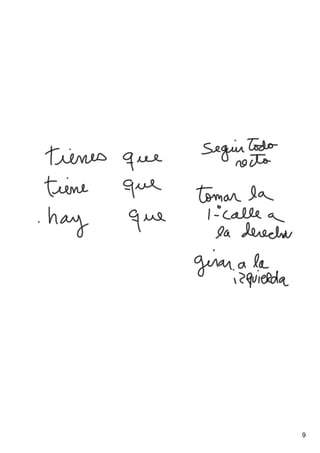 tienes que
tiene que
. hay que
Seguir todo
recto
tomar la
1ª calle a
la derecha
girar a la
izquierda
9